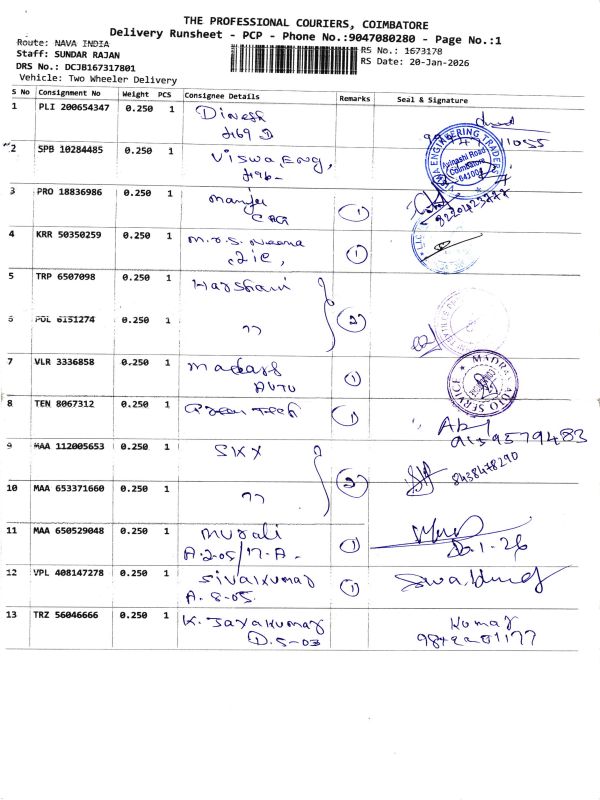 THE PROFESSIONAL COURIERS, COIMBATORE
Delivery Runsheet - PCP - Phone No.:9047080280 - Page No.:1
Route: NAVA INDIA
Staff: SUNDAR RAJAN
DRS No.: DCJB167317801
Vehicle: Two Wheeler Delivery
RS No.: 1673178
RS Date: 20-Jan-2026
S No Consignment No Weight PCS Consignee Details Remarks Seal & Signature
1 PLI 200654347 0.250 1 Dinesh
2 SPB 10284485 0.250 1 Viswa Eng,
VISWA ENGINEERING TRADERS
Avinashi Road
Coimbatore
641004
3 PRO 18836986 0.250 1 manju 1
4 KRR 50350259 0.250 1 1
5 TRP 6507098 0.250 1 Harshani
6 POL 6151274 0.250 1 " 2
7 VLR 3336858 0.250 1 madras 1
AUTO
MADRAS AUTO SERVICE
8 TEN 8067312 0.250 1 Green Tech 1
9 MAA 112005653 0.250 1 SKX
8438478290
10 MAA 653371660 0.250 1 " 2
11 MAA 650529048 0.250 1 murali 1
A.2-05/17-A.
20.1-26
12 VPL 408147278 0.250 1 Sivakumar 1
A. 8-05.
13 TRZ 56046666 0.250 1 K. Jayakumar Kumar
D.5-03